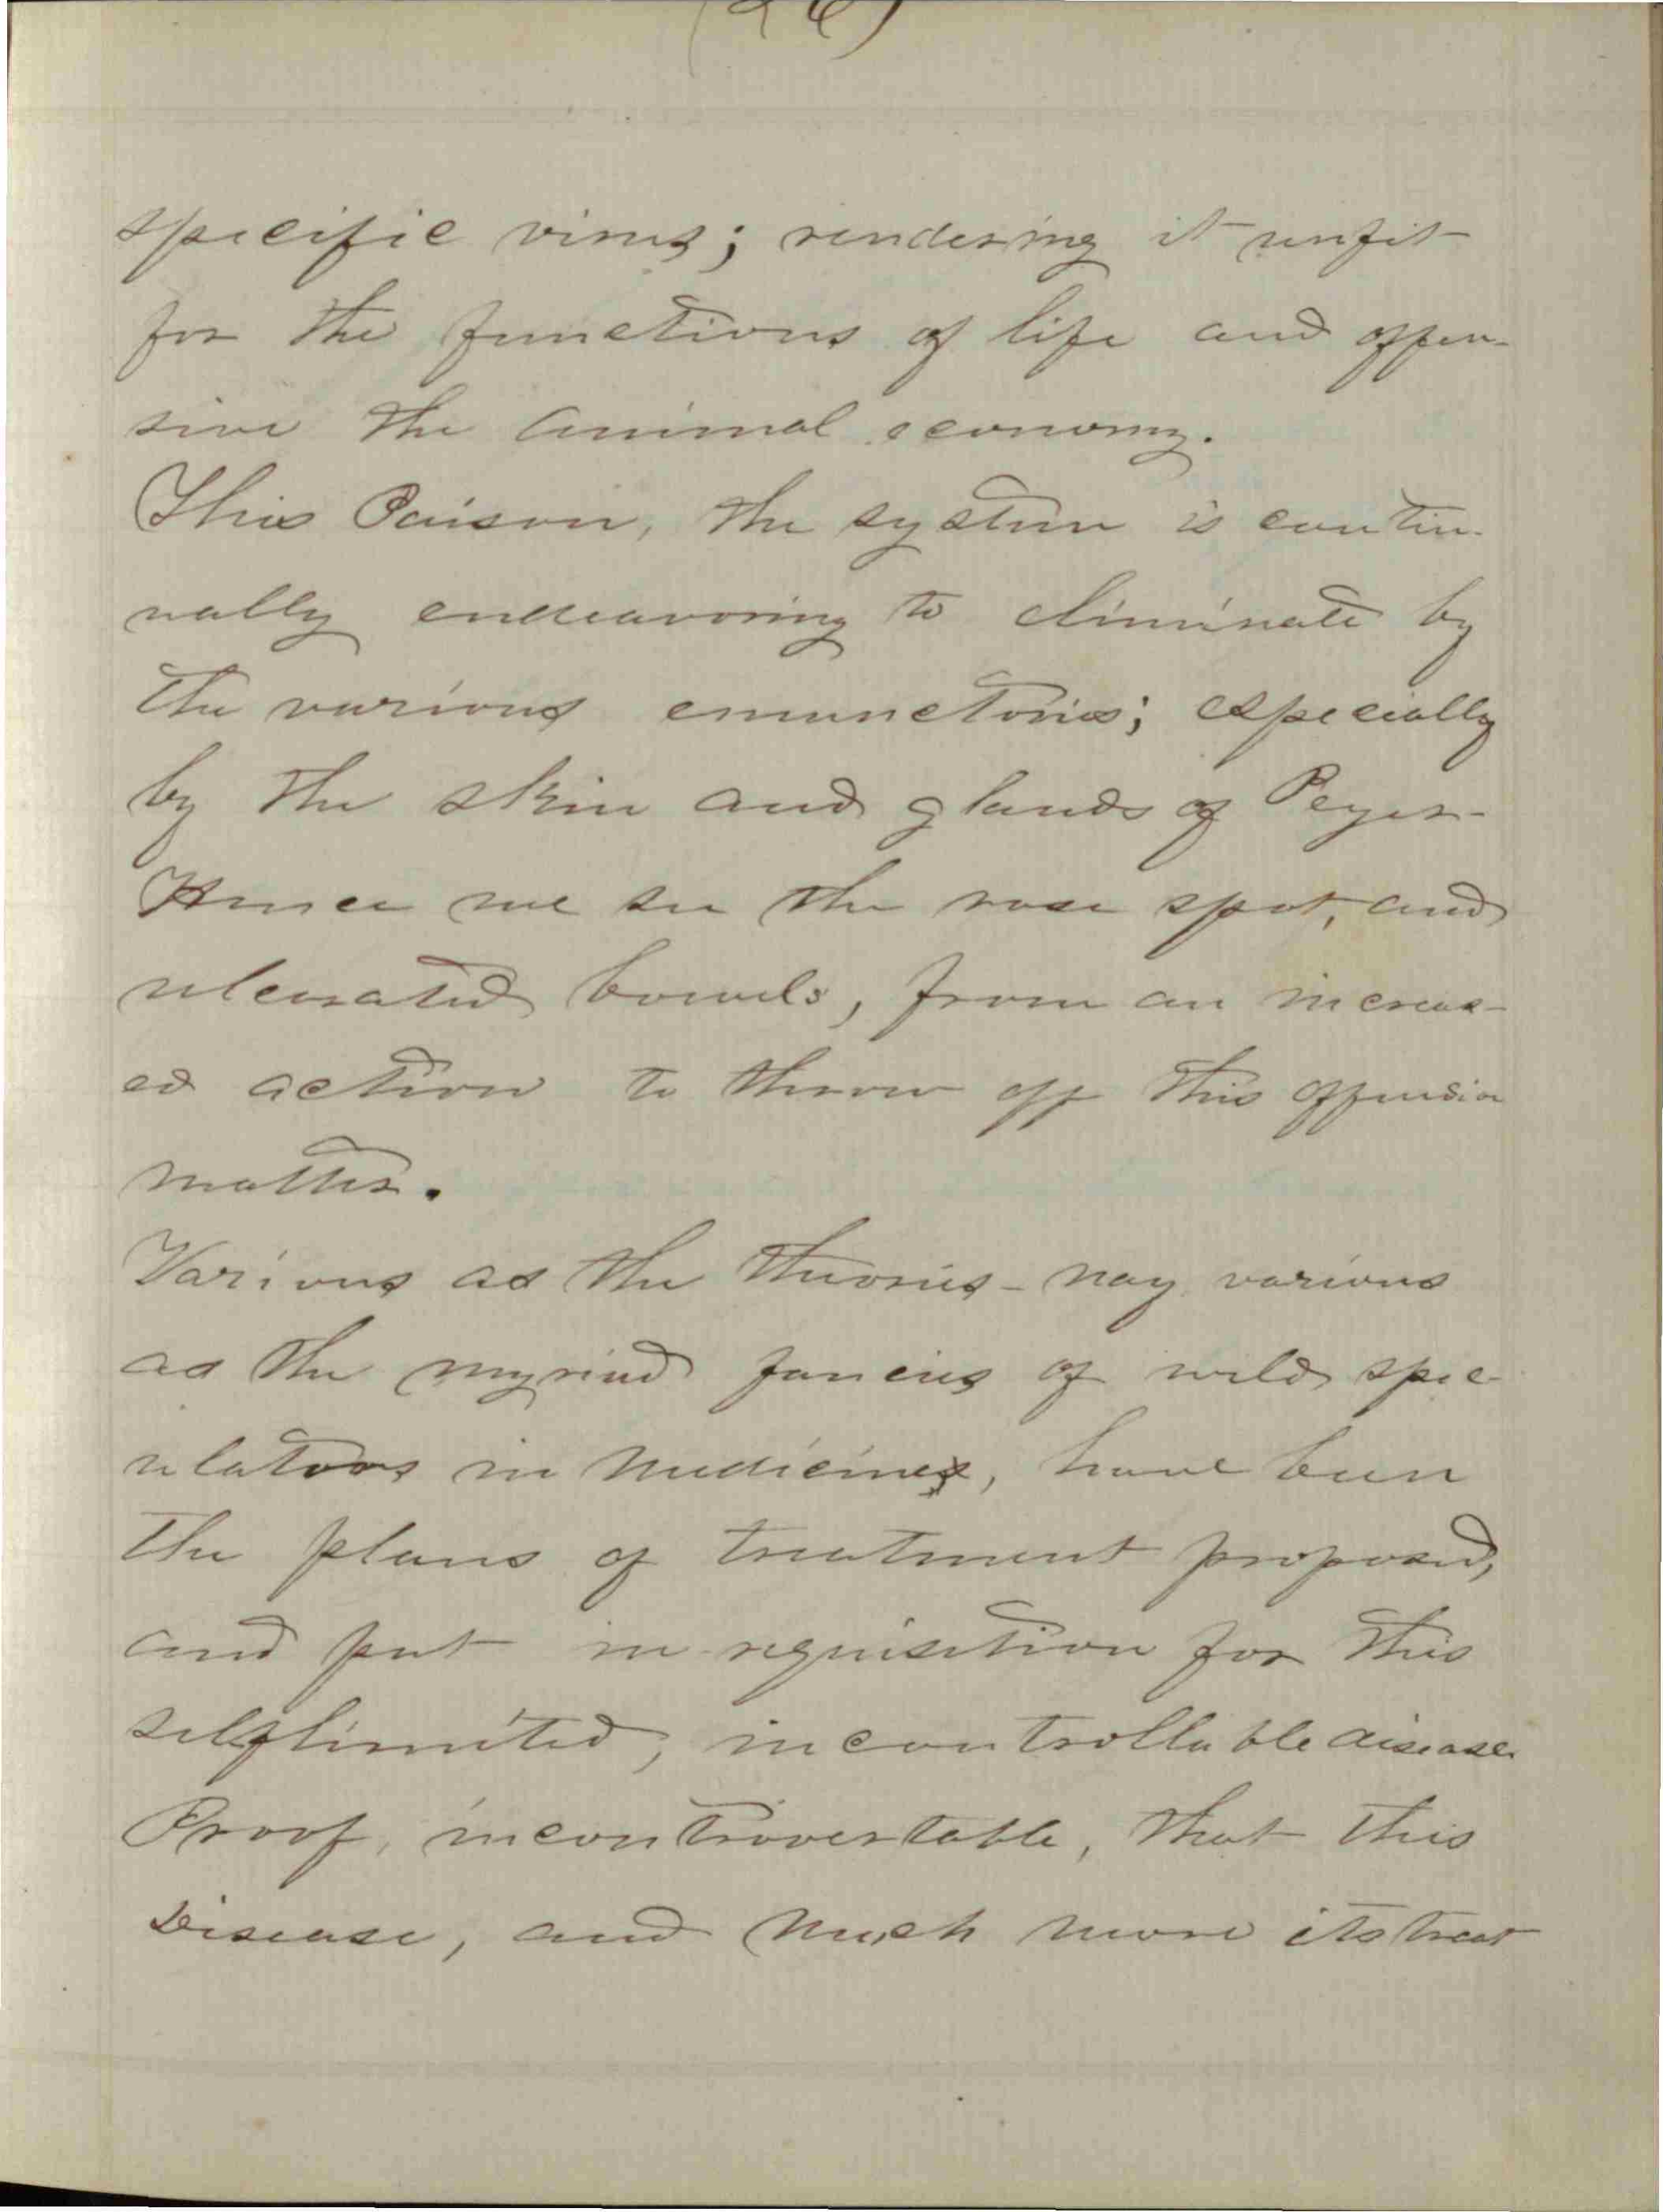 specific virus; rendering it unfit
for the functions of life and offen-
sive the animal economy.
This Poison, the system is contin-
ually endeavoring to eliminate by
the various emunctories; especially
by the skin and glands of Peyer-
Hence we see the rose spot, and
ulcerated bowels, from an increas-
ed action to throw off this offensive
matter.
Various as the theories - nay various
as the myriad fancies of wild spec-
ulators in medicines, have been
the plans of treatment proposed,
and put in requisition for this
selflimited, incontrollable disease.
Proof, incontrovertable, that this
Disease, and much more its treat